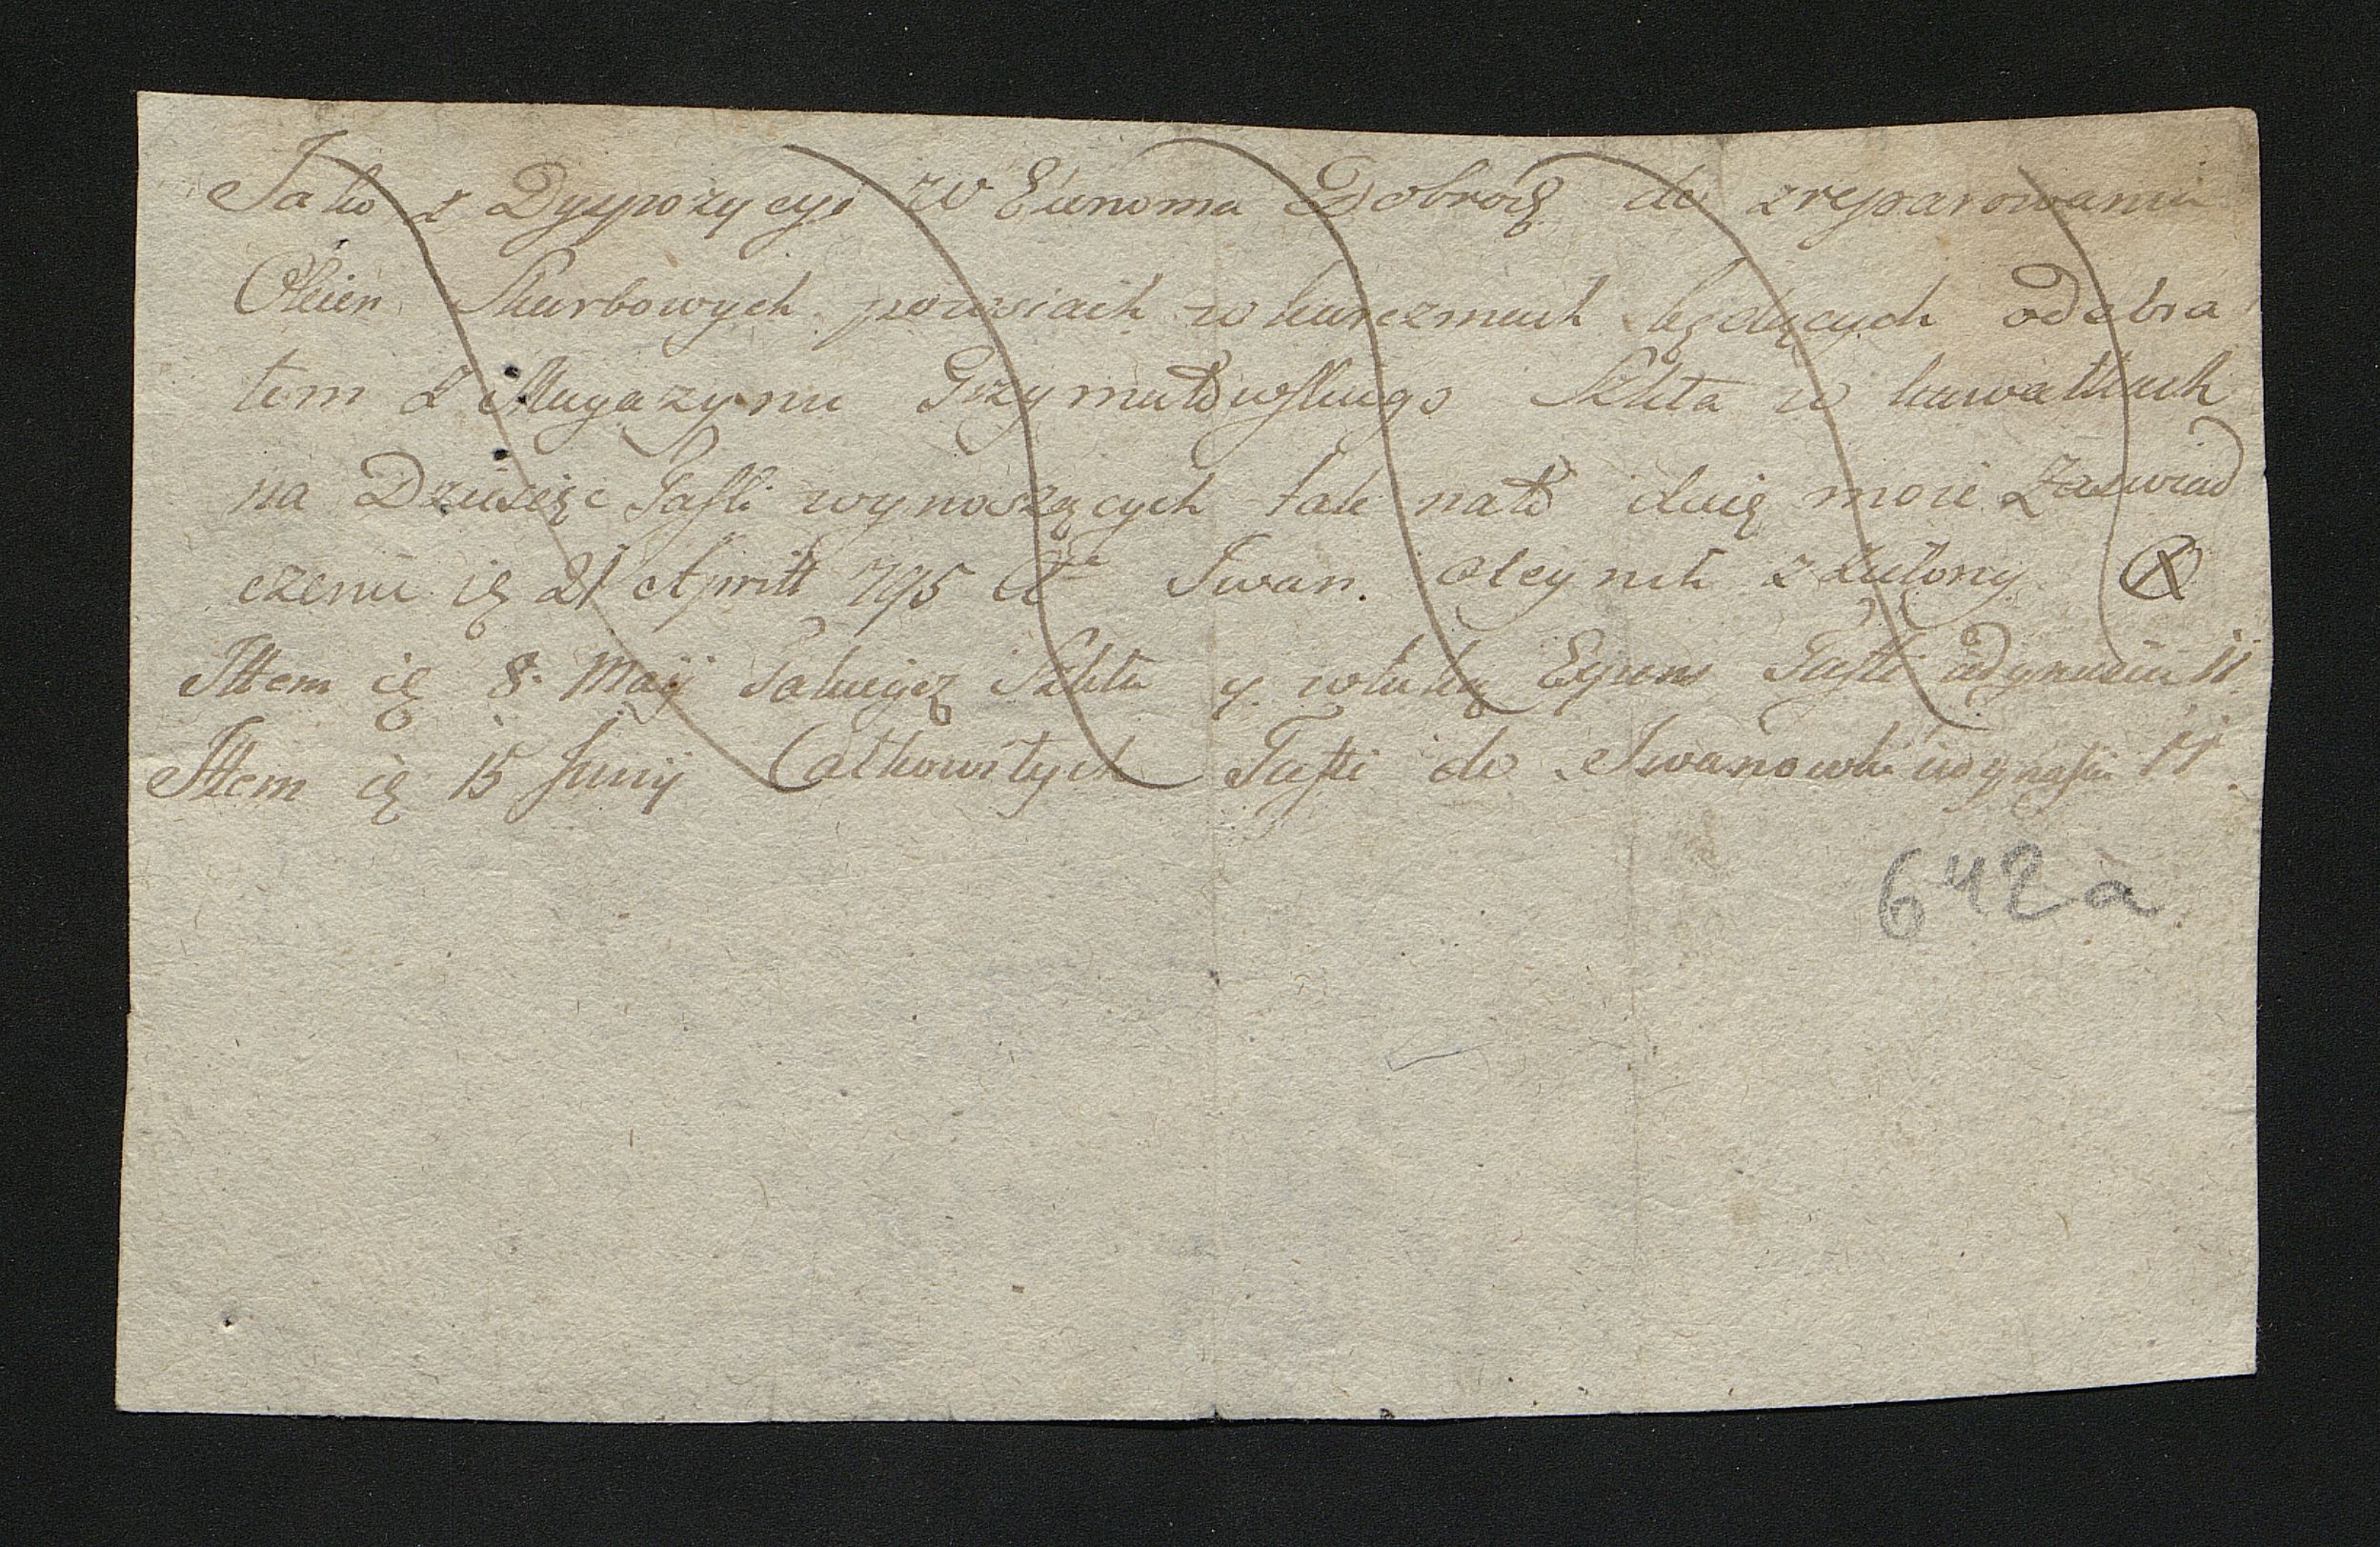 Jako z Dyspozycyi W Ekonoma Dobrodz do zreparowania
Okien Skarbowych powsiach w karczmach będących odebra
łem z Magazynu Grzymałowskiego Szkła w kawałkach
na Dziesięć Tafli wynoszących tak nato daię moie Zaswiad
czenie 21 Aprill 795 Iwan Oleynik z
Ittem 8 Maij Takiegoż Szkła y Tafli 11
Ittem 15 Junij Całkowitych Tafli do Iwanowki 11
642a